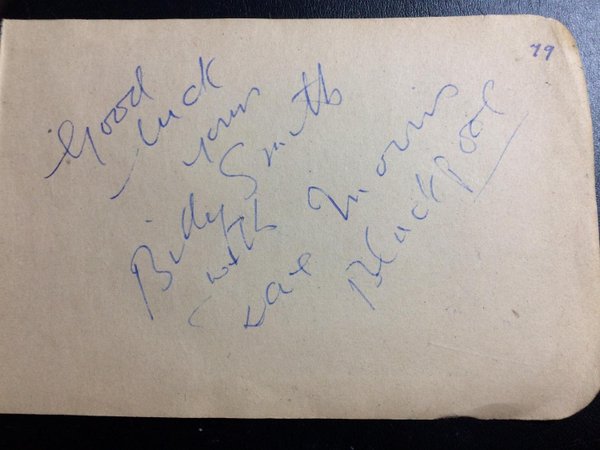 Good
Luck
yours
Billy Smith
with
Dave Morris
Blackpool
79